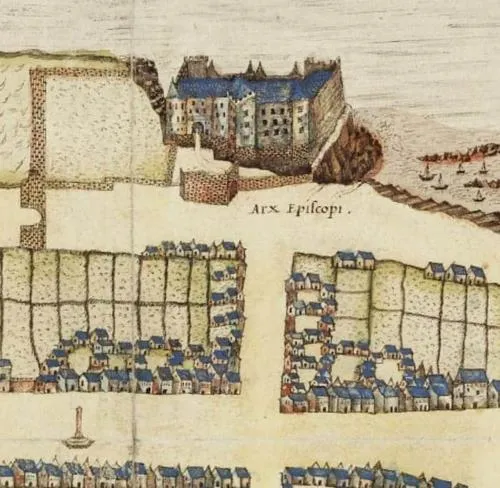 Arx Epiſcopi .